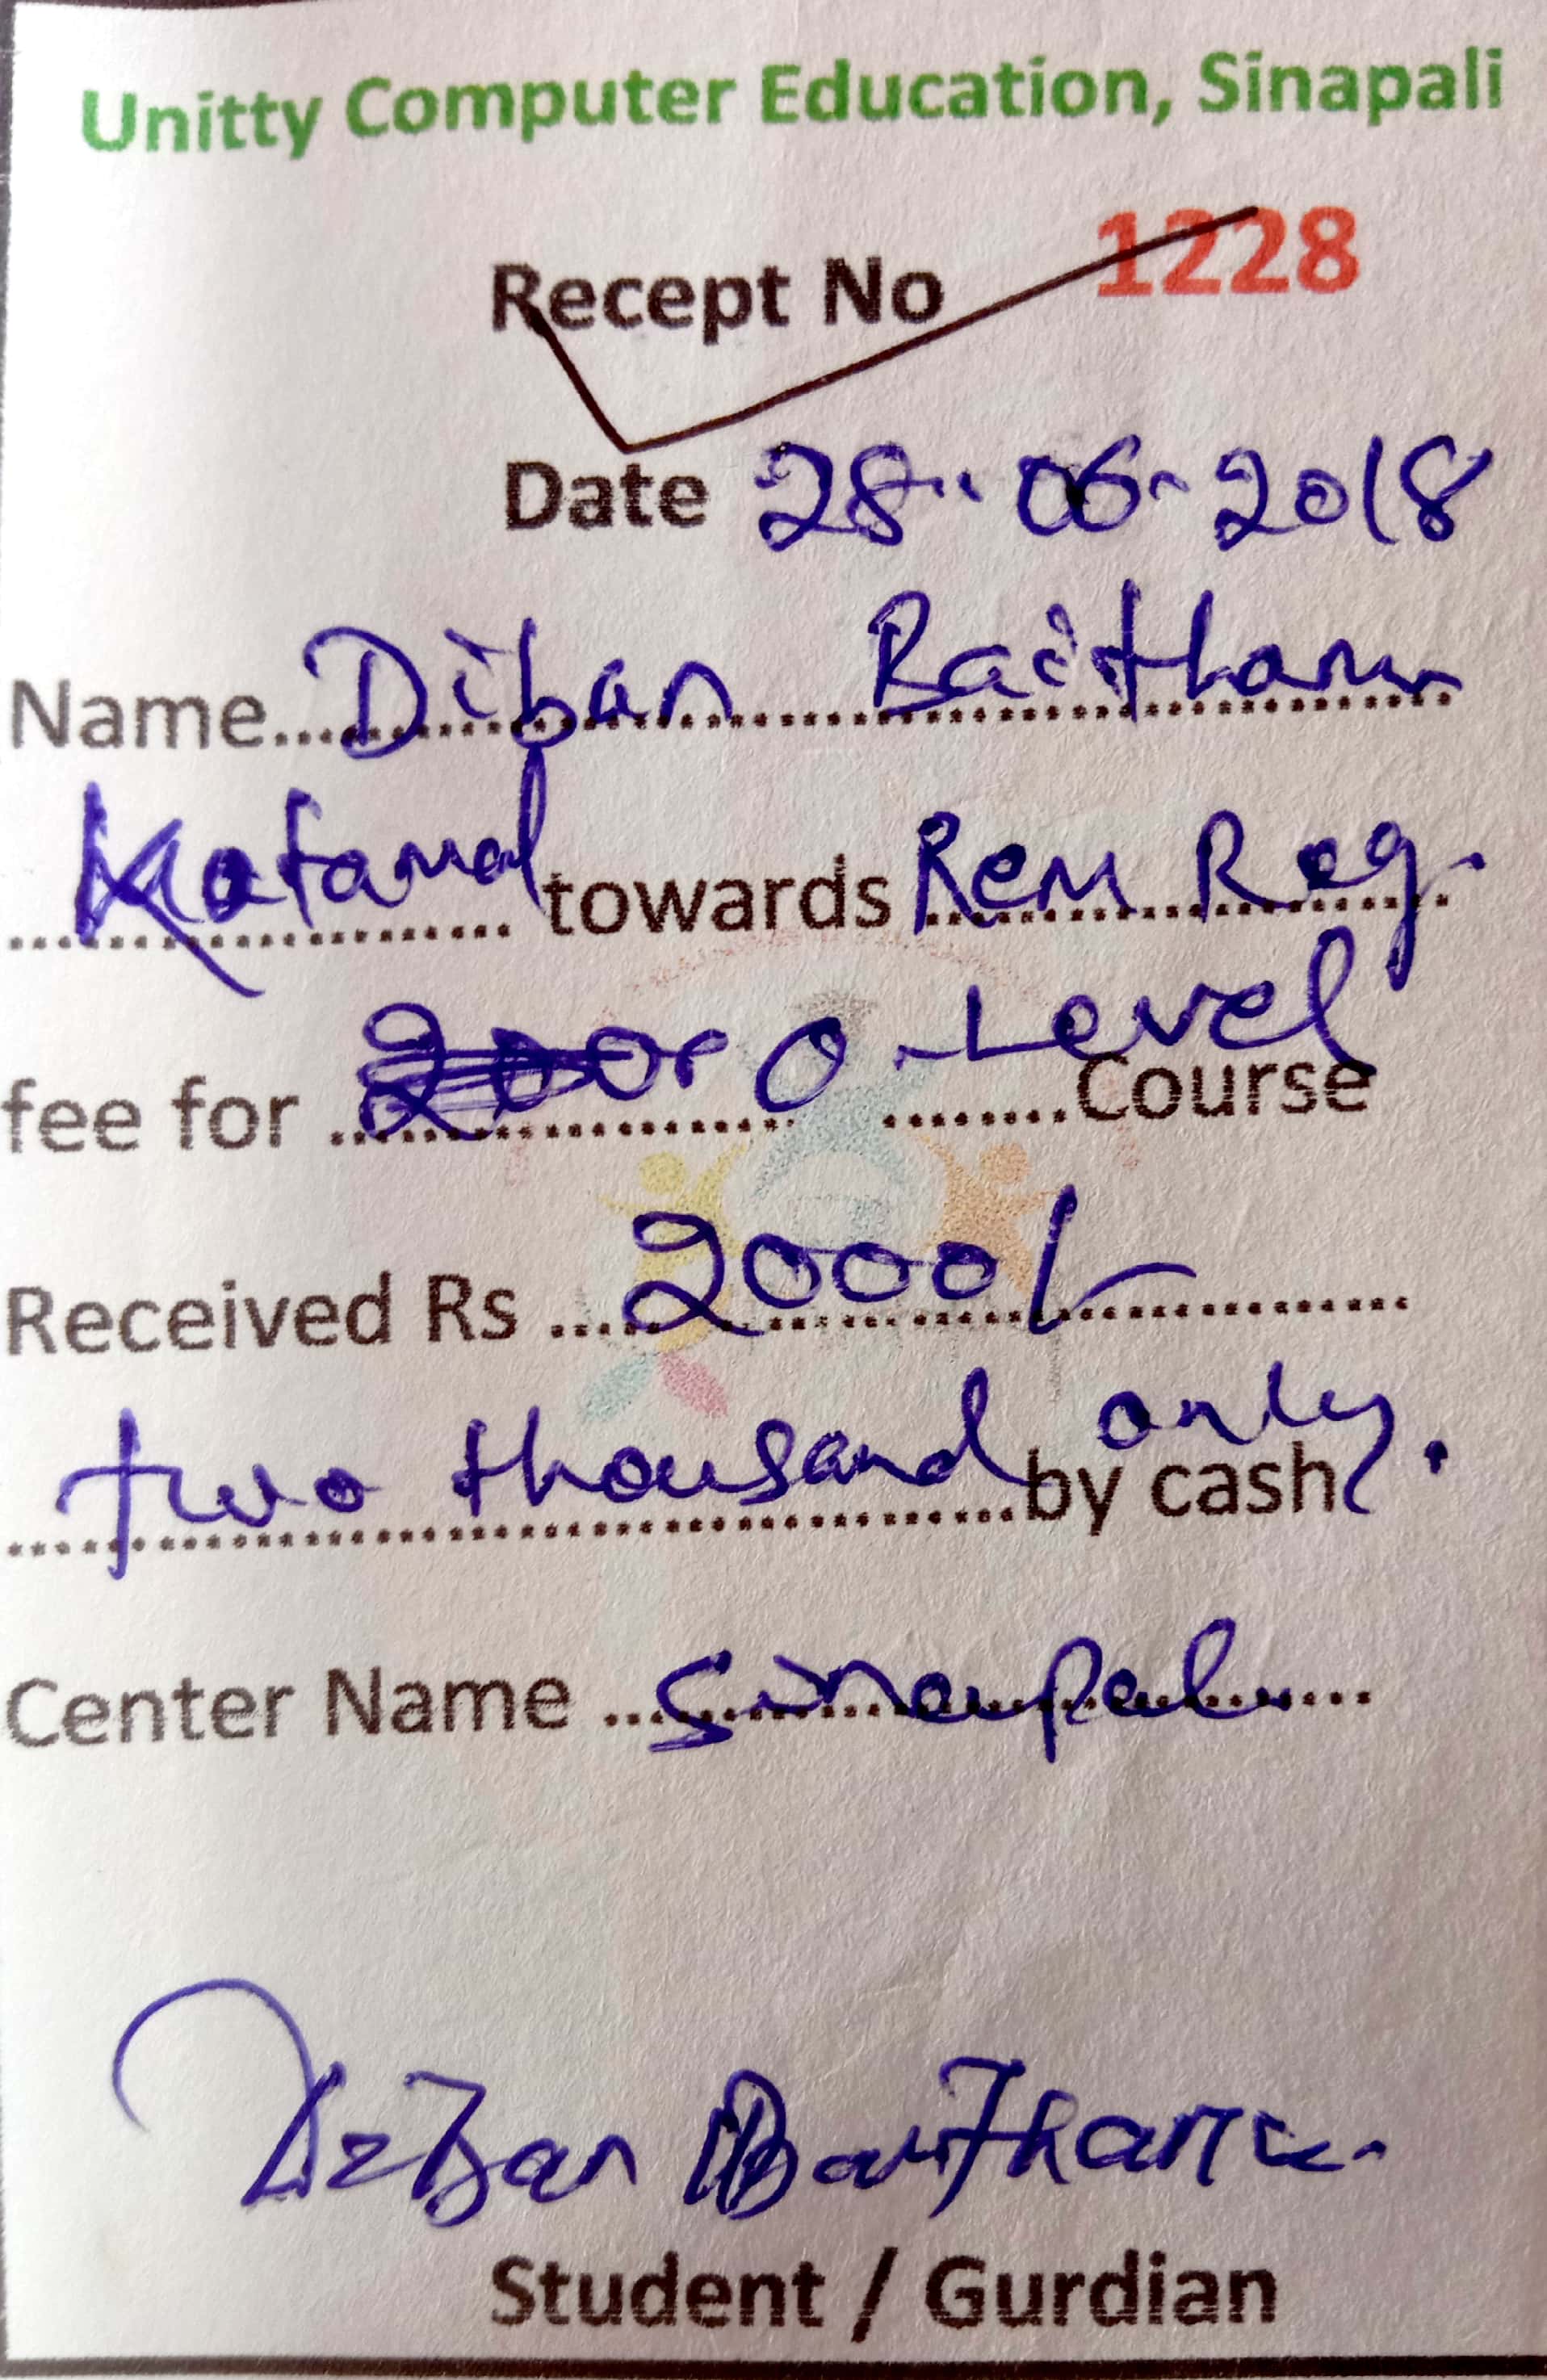 Unitty Computer Education, Sinapali
Recept No 1228
Date 28-06-2018
Name Diban Baitharu
Katamal towards Rem Reg.
fee for O-Level Course
Received Rs 2000/-
two thousand only. by cash
Center Name Sinapali
Diban Baitharu
Student / Gurdian